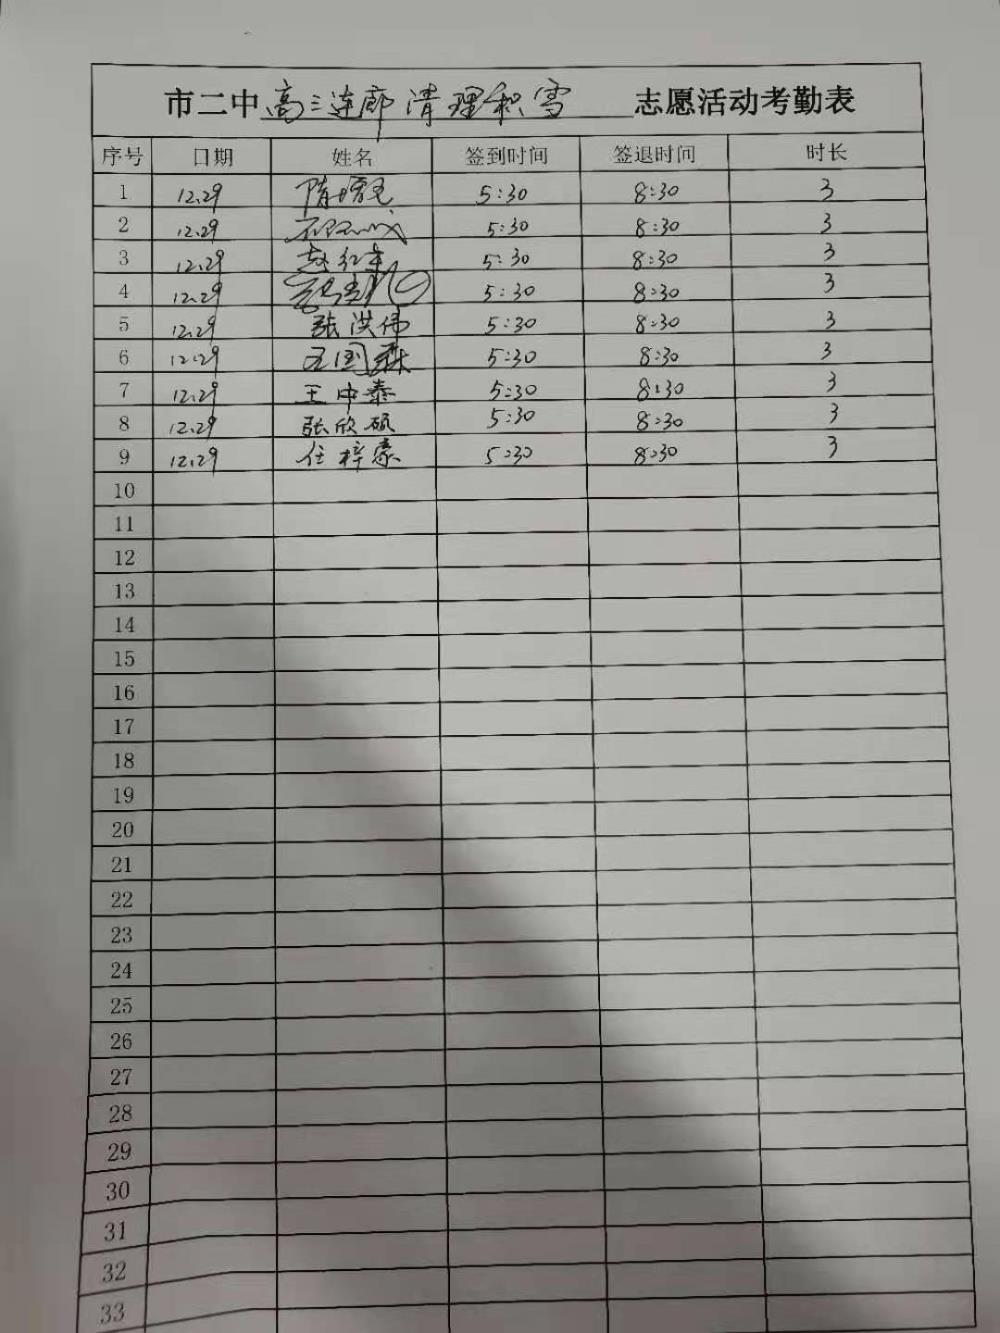 市二中高三连廊清理积雪 志愿活动考勤表
序号 日期 姓名 签到时间 签退时间 时长
1 12.29 隋增毛 5:30 8:30 3
2 12.29 5:30 8:30 3
3 12.29 赵红幸 5:30 8:30 3
4 12.29 5:30 8:30 3
5 12.29 张洪伟 5:30 8:30 3
6 12.29 王国森 5:30 8:30 3
7 12.29 王中泰 5:30 8:30 3
8 12.29 张欣硕 5:30 8:30 3
9 12.29 任梓豪 5:30 8:30 3
10
11
12
13
14
15
16
17
18
19
20
21
22
23
24
25
26
27
28
29
30
31
32
33